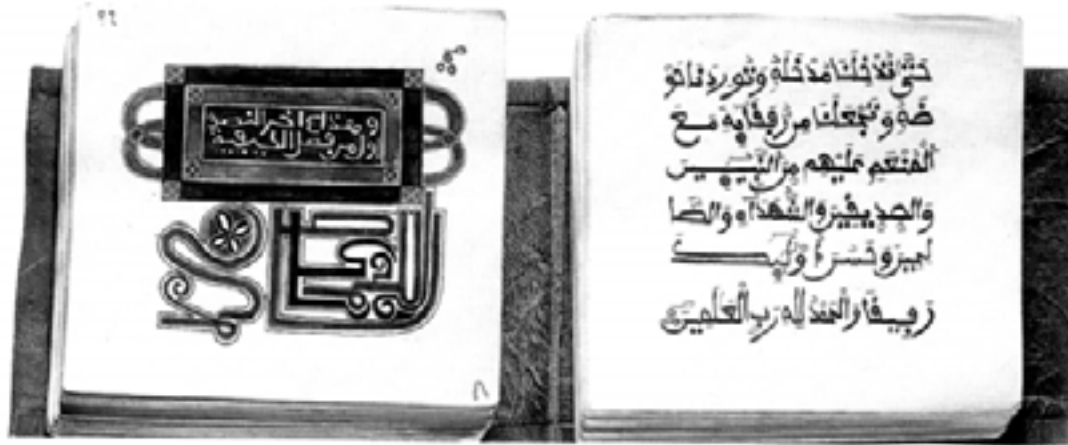 حتى تدخلنا مدخله وتوردنا حو
ضه وتجعلنا من رفقائه مع
المنعم عليهم من النبيين
والصديقين والشهداء والصا
لحين وحسن أولئك
رفيقا والحمد لله رب العلمين
وهذا اخر النصف
ول من فصل الكيفية